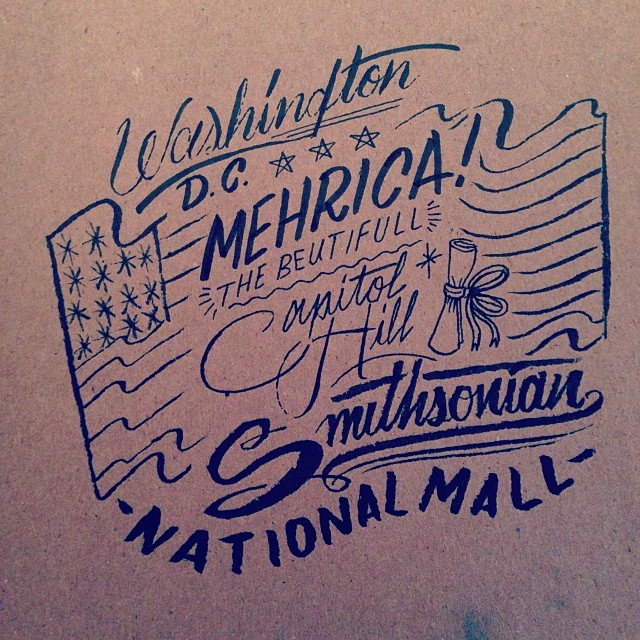 Washington
D.C.
MEHRICA!
THE BEUTIFULL
Capitol
Hill
Smithsonian
NATIONAL MALL